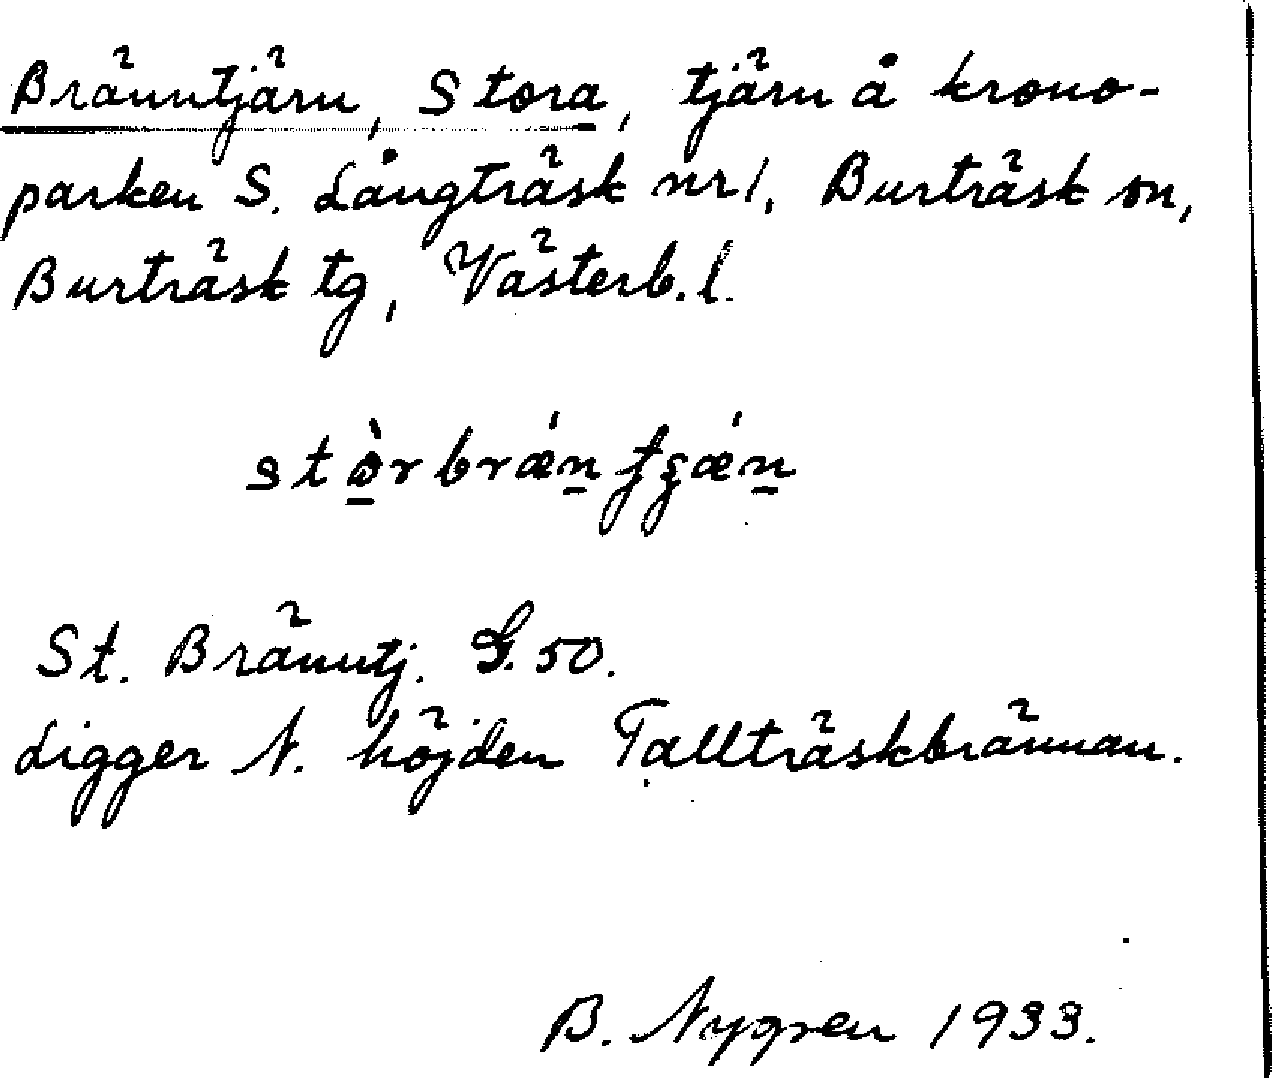 Bränntjärn, Stora, tjärn å krono-
parken S. Långträsk nr 1, Burträsk sn,
Burträsk tg, Västerb. l.
St. Bränntj. G. 50.
Ligger N. höjden Tallträskbrännan.
B. Nygren 1933.